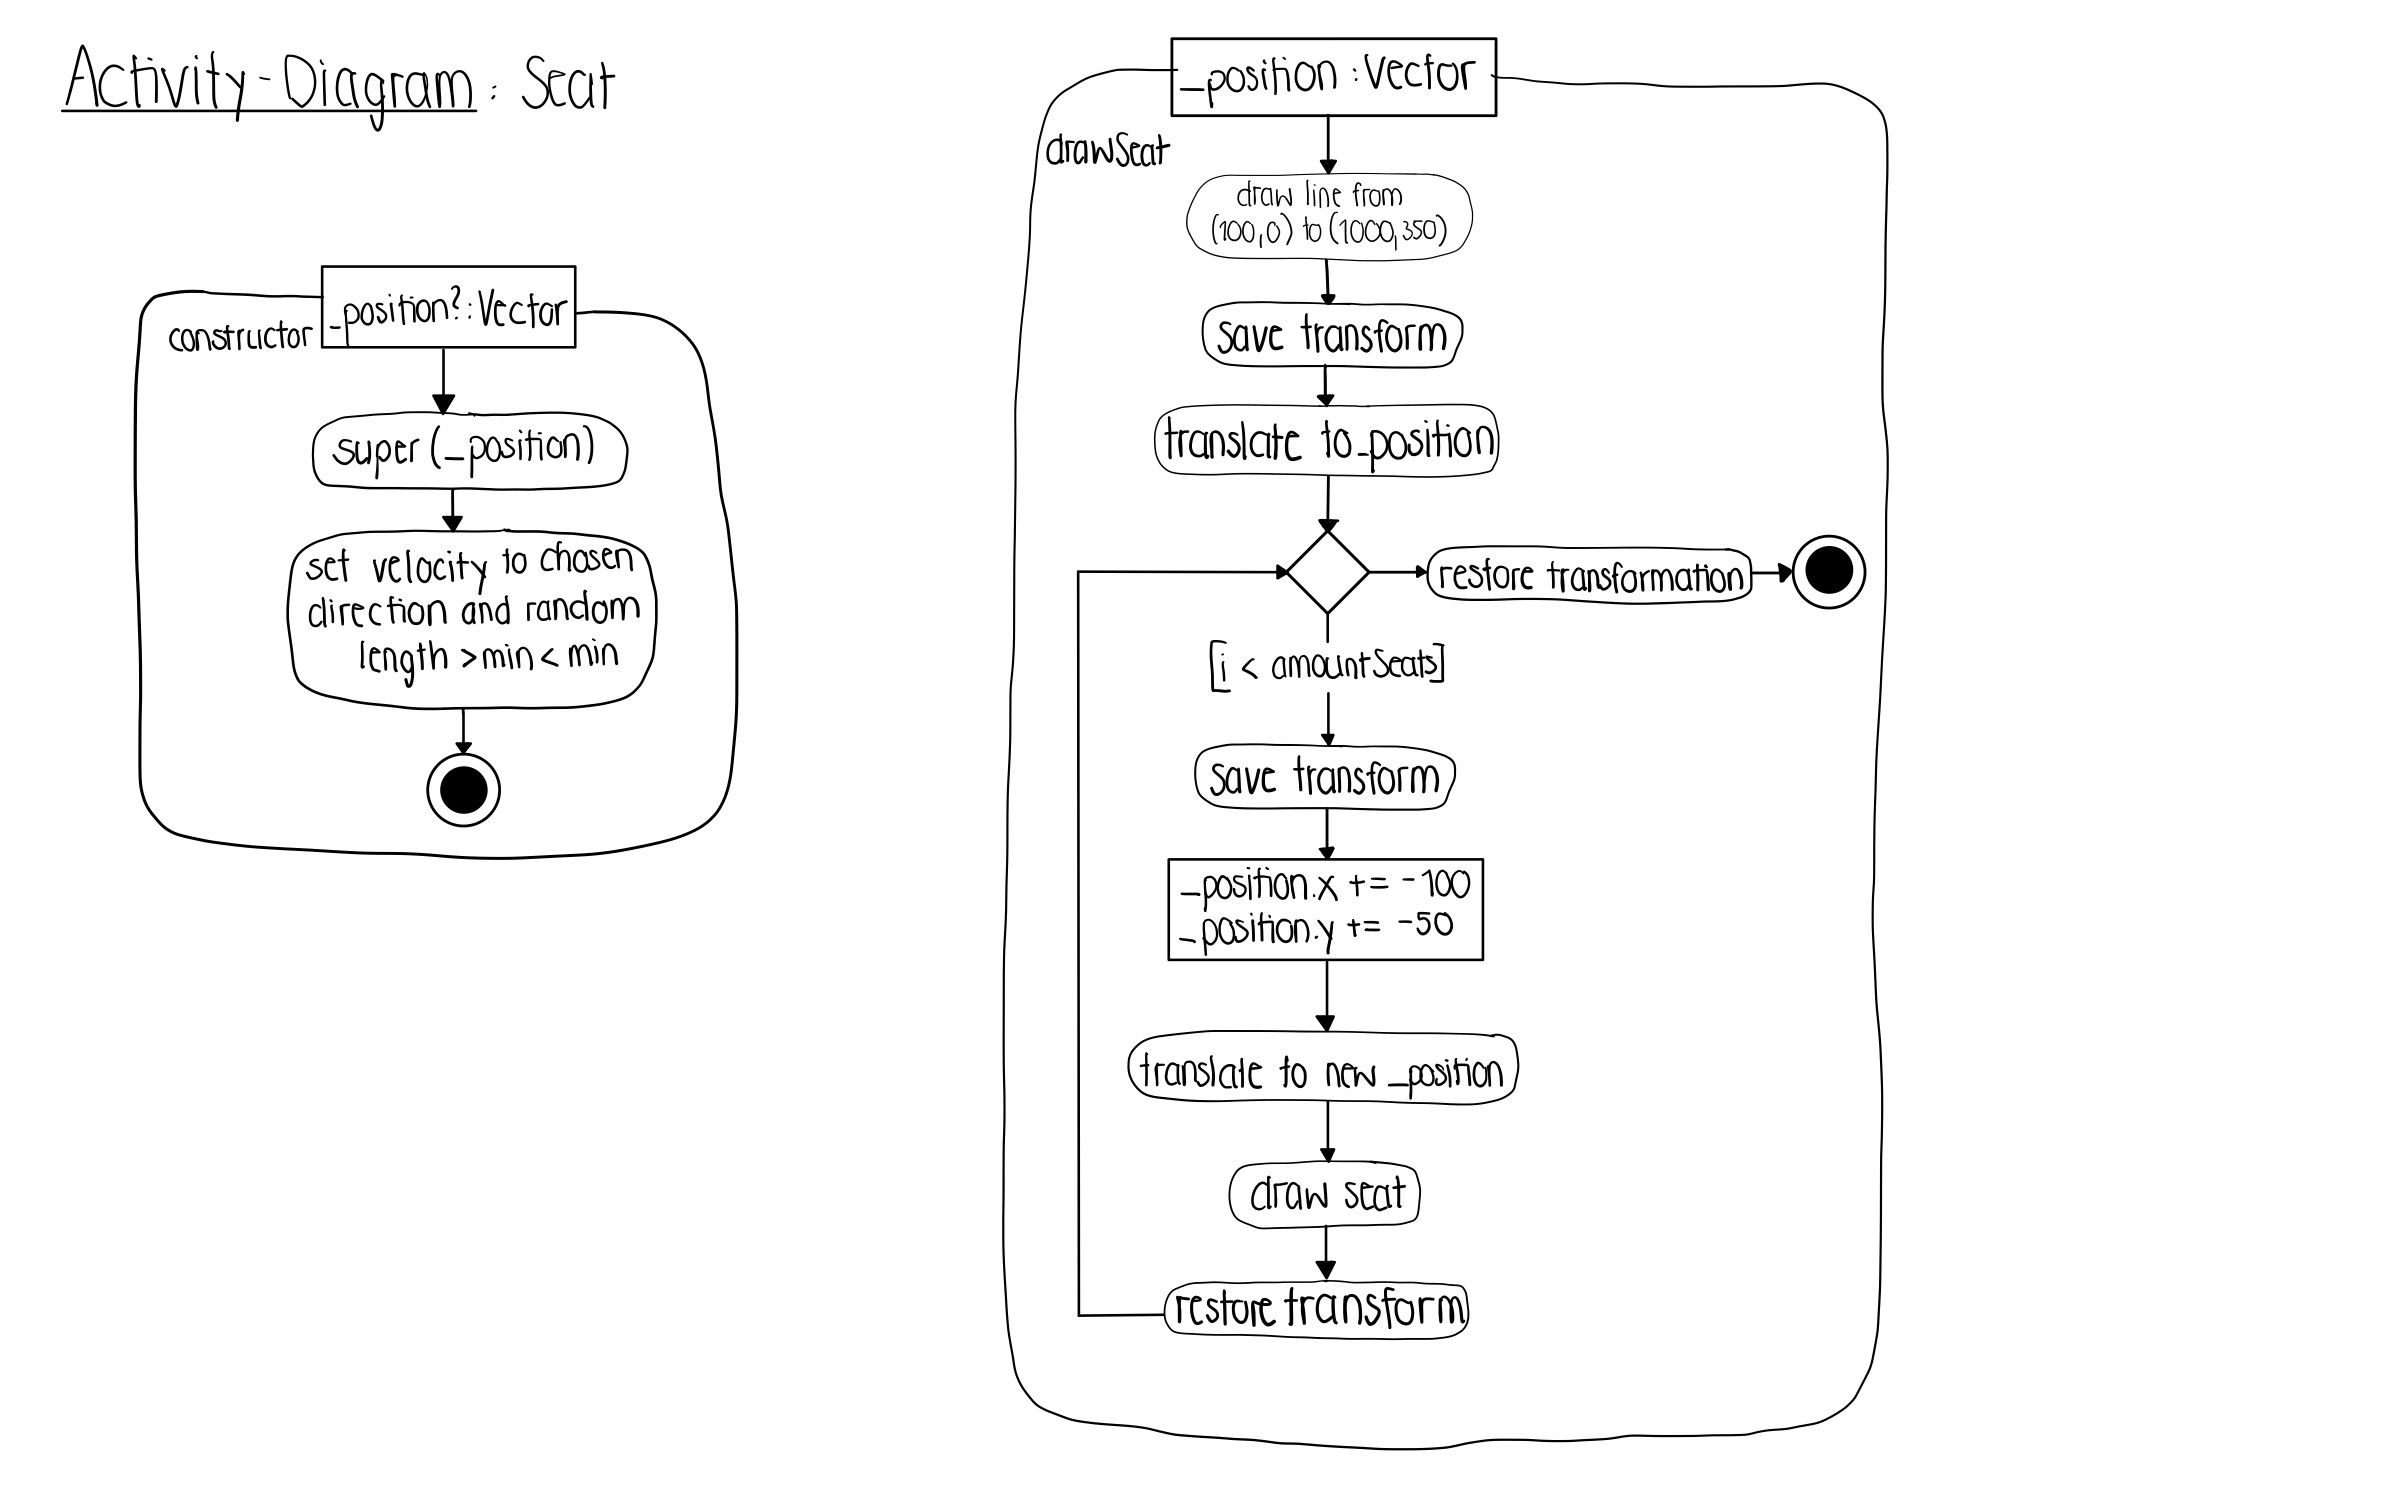 Activity-Diagram: Seat
constructor
_position?: Vector
super (_position)
set velocity to chosen
direction and random
length > min < min
drawSeat
_position : Vector
draw line from
(100,0) to (1000,350)
save transform
translate to _position
restore transformation
[i < amountSeats]
save transform
_position.x += -100
_position.y += -50
translate to new _position
draw seat
restore transform